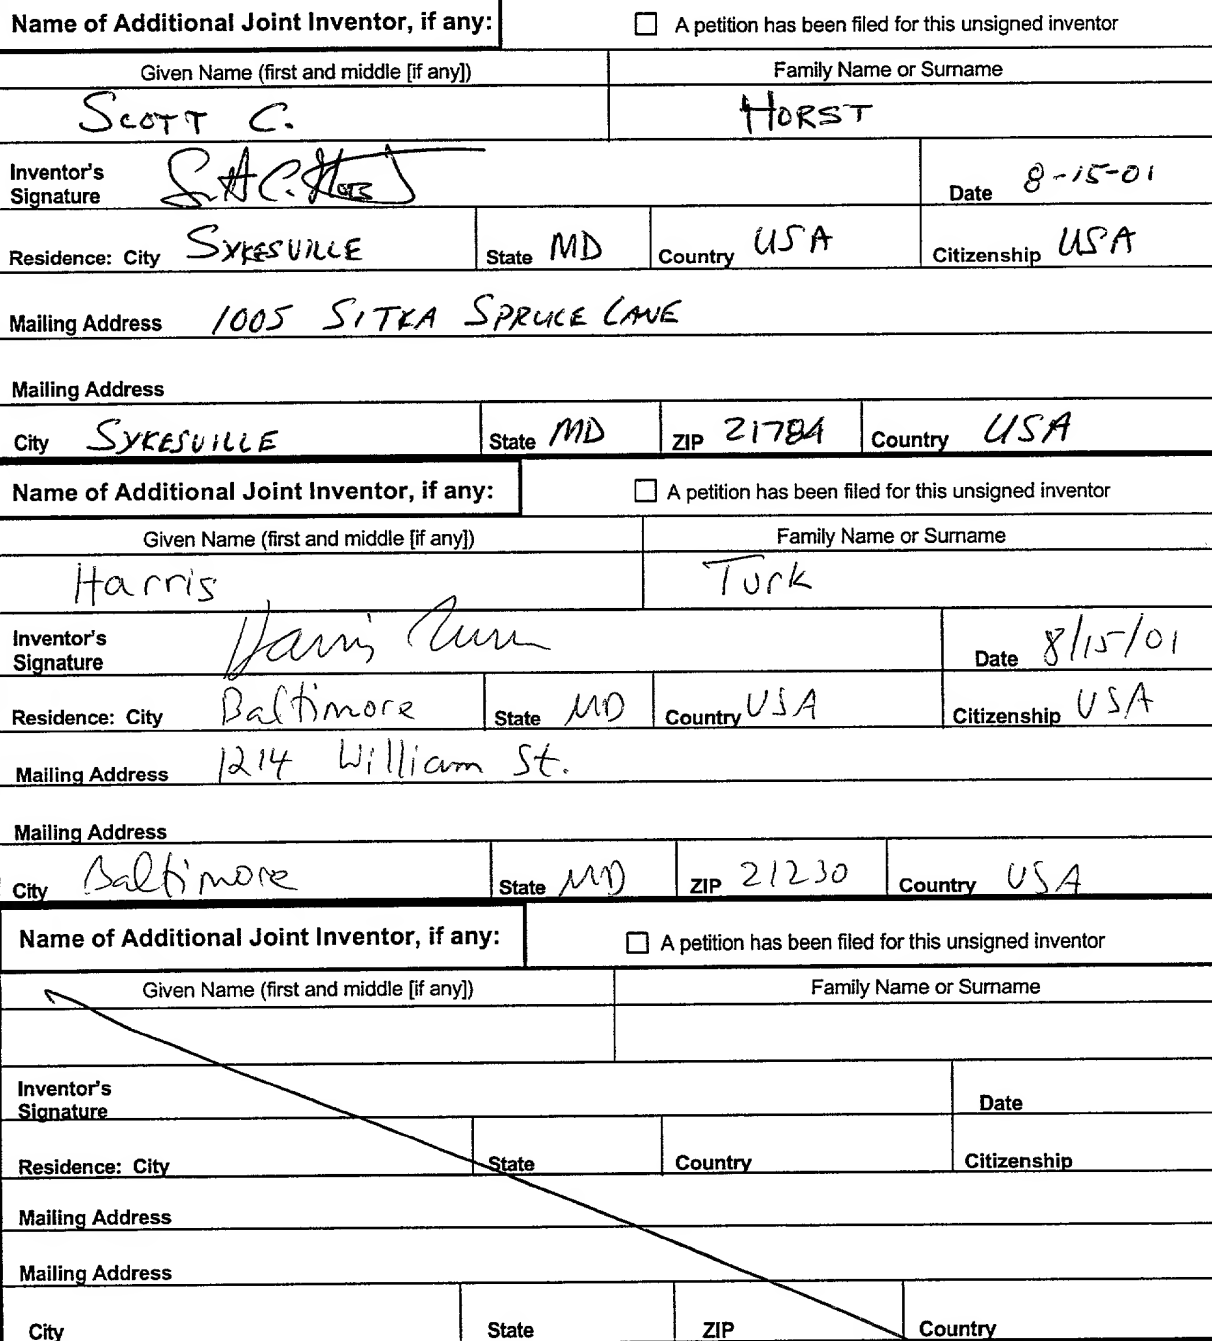 Name of Additional Joint Inventor, if any: A petition has been filed for this unsigned inventor
Given Name (first and middle [if any]) Family Name or Surname
SCOTT C. HORST
Inventor's Signature Scott C. Horst Date 8-15-01
Residence: City SYKESVILLE State MD Country USA Citizenship USA
Mailing Address 1005 SITKA SPRUCE LANE
Mailing Address
City SYKESVILLE State MD ZIP 21784 Country USA
Name of Additional Joint Inventor, if any: A petition has been filed for this unsigned inventor
Given Name (first and middle [if any]) Family Name or Surname
Harris Turk
Inventor's Signature Harris Turk Date 8/15/01
Residence: City Baltimore State MD Country USA Citizenship USA
Mailing Address 1214 William St.
Mailing Address
City Baltimore State MD ZIP 21230 Country USA
Name of Additional Joint Inventor, if any: A petition has been filed for this unsigned inventor
Given Name (first and middle [if any]) Family Name or Surname
Inventor's Signature Date
Residence: City State Country Citizenship
Mailing Address
Mailing Address
City State ZIP Country